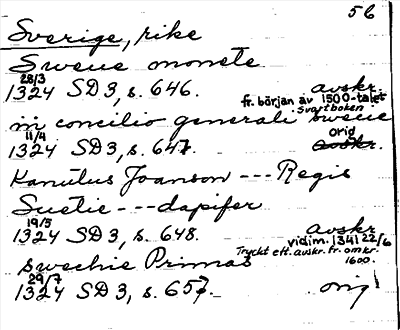 56
Sverige, rike
Sweue monete
28/3
1324 SD3, s. 646. avskr.
fr. början av 1500-talet
Svartboken
in concilio generali sweue
11/4 orig
1324 SD3, s. 647. avskr.
Kanutus Joanson --- Regis
Suetie --- dapifer
19/5
1324 SD3, s. 648. avskr
vidim. 1341 22/6
Tryckt eft. avskr. fr. omkr. 1600.
swechie Primas
29/7
1324 SD3, s. 657. orig